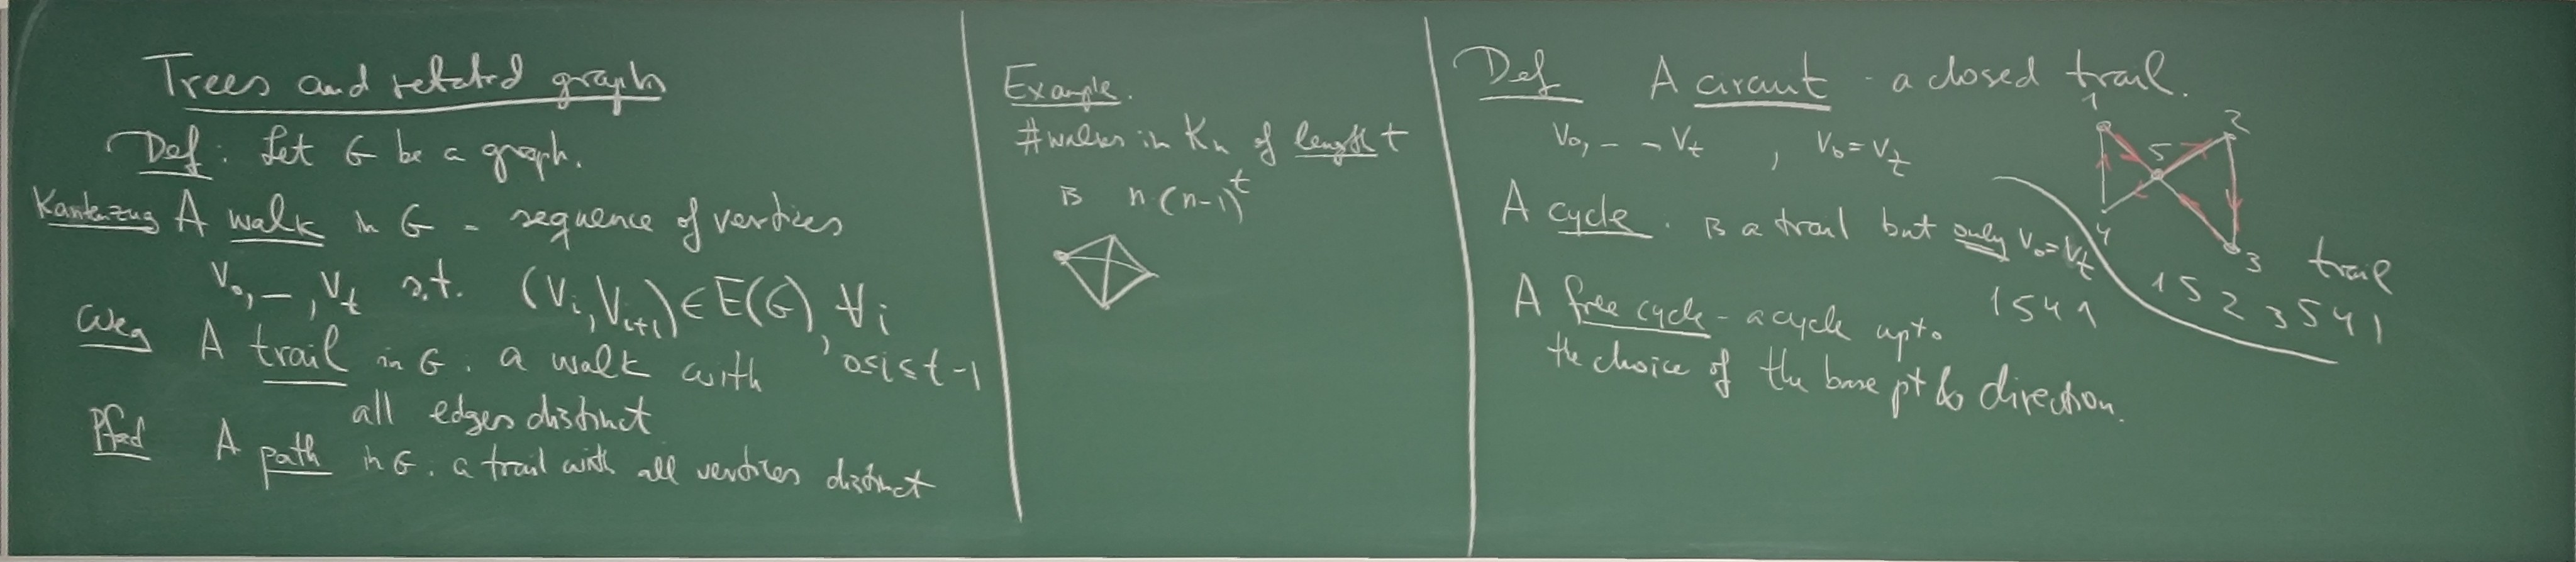 Trees and related graphs
Def: Let G be a graph.
Kantenzug A walk in G - sequence of vertices
V₀, –, Vₜ s.t. (Vᵢ, Vᵢ₊₁) ∈ E(G), ∀i
0≤i≤t-1
Weg A trail in G. a walk with
all edges distinct
Pfad A path in G. a trail with all vertices distinct
Example.
#walks in Kₙ of length t
is n·(n-1)ᵗ
Def A circuit - a closed trail.
V₀, – – Vₜ , V₀=Vₜ
A cycle. is a trail but only V₀=Vₜ
A free cycle - a cycle up to
the choice of the base pt & direction.
1 5 4 1
1
2
5
4
3
trail
1 5 2 3 5 4 1